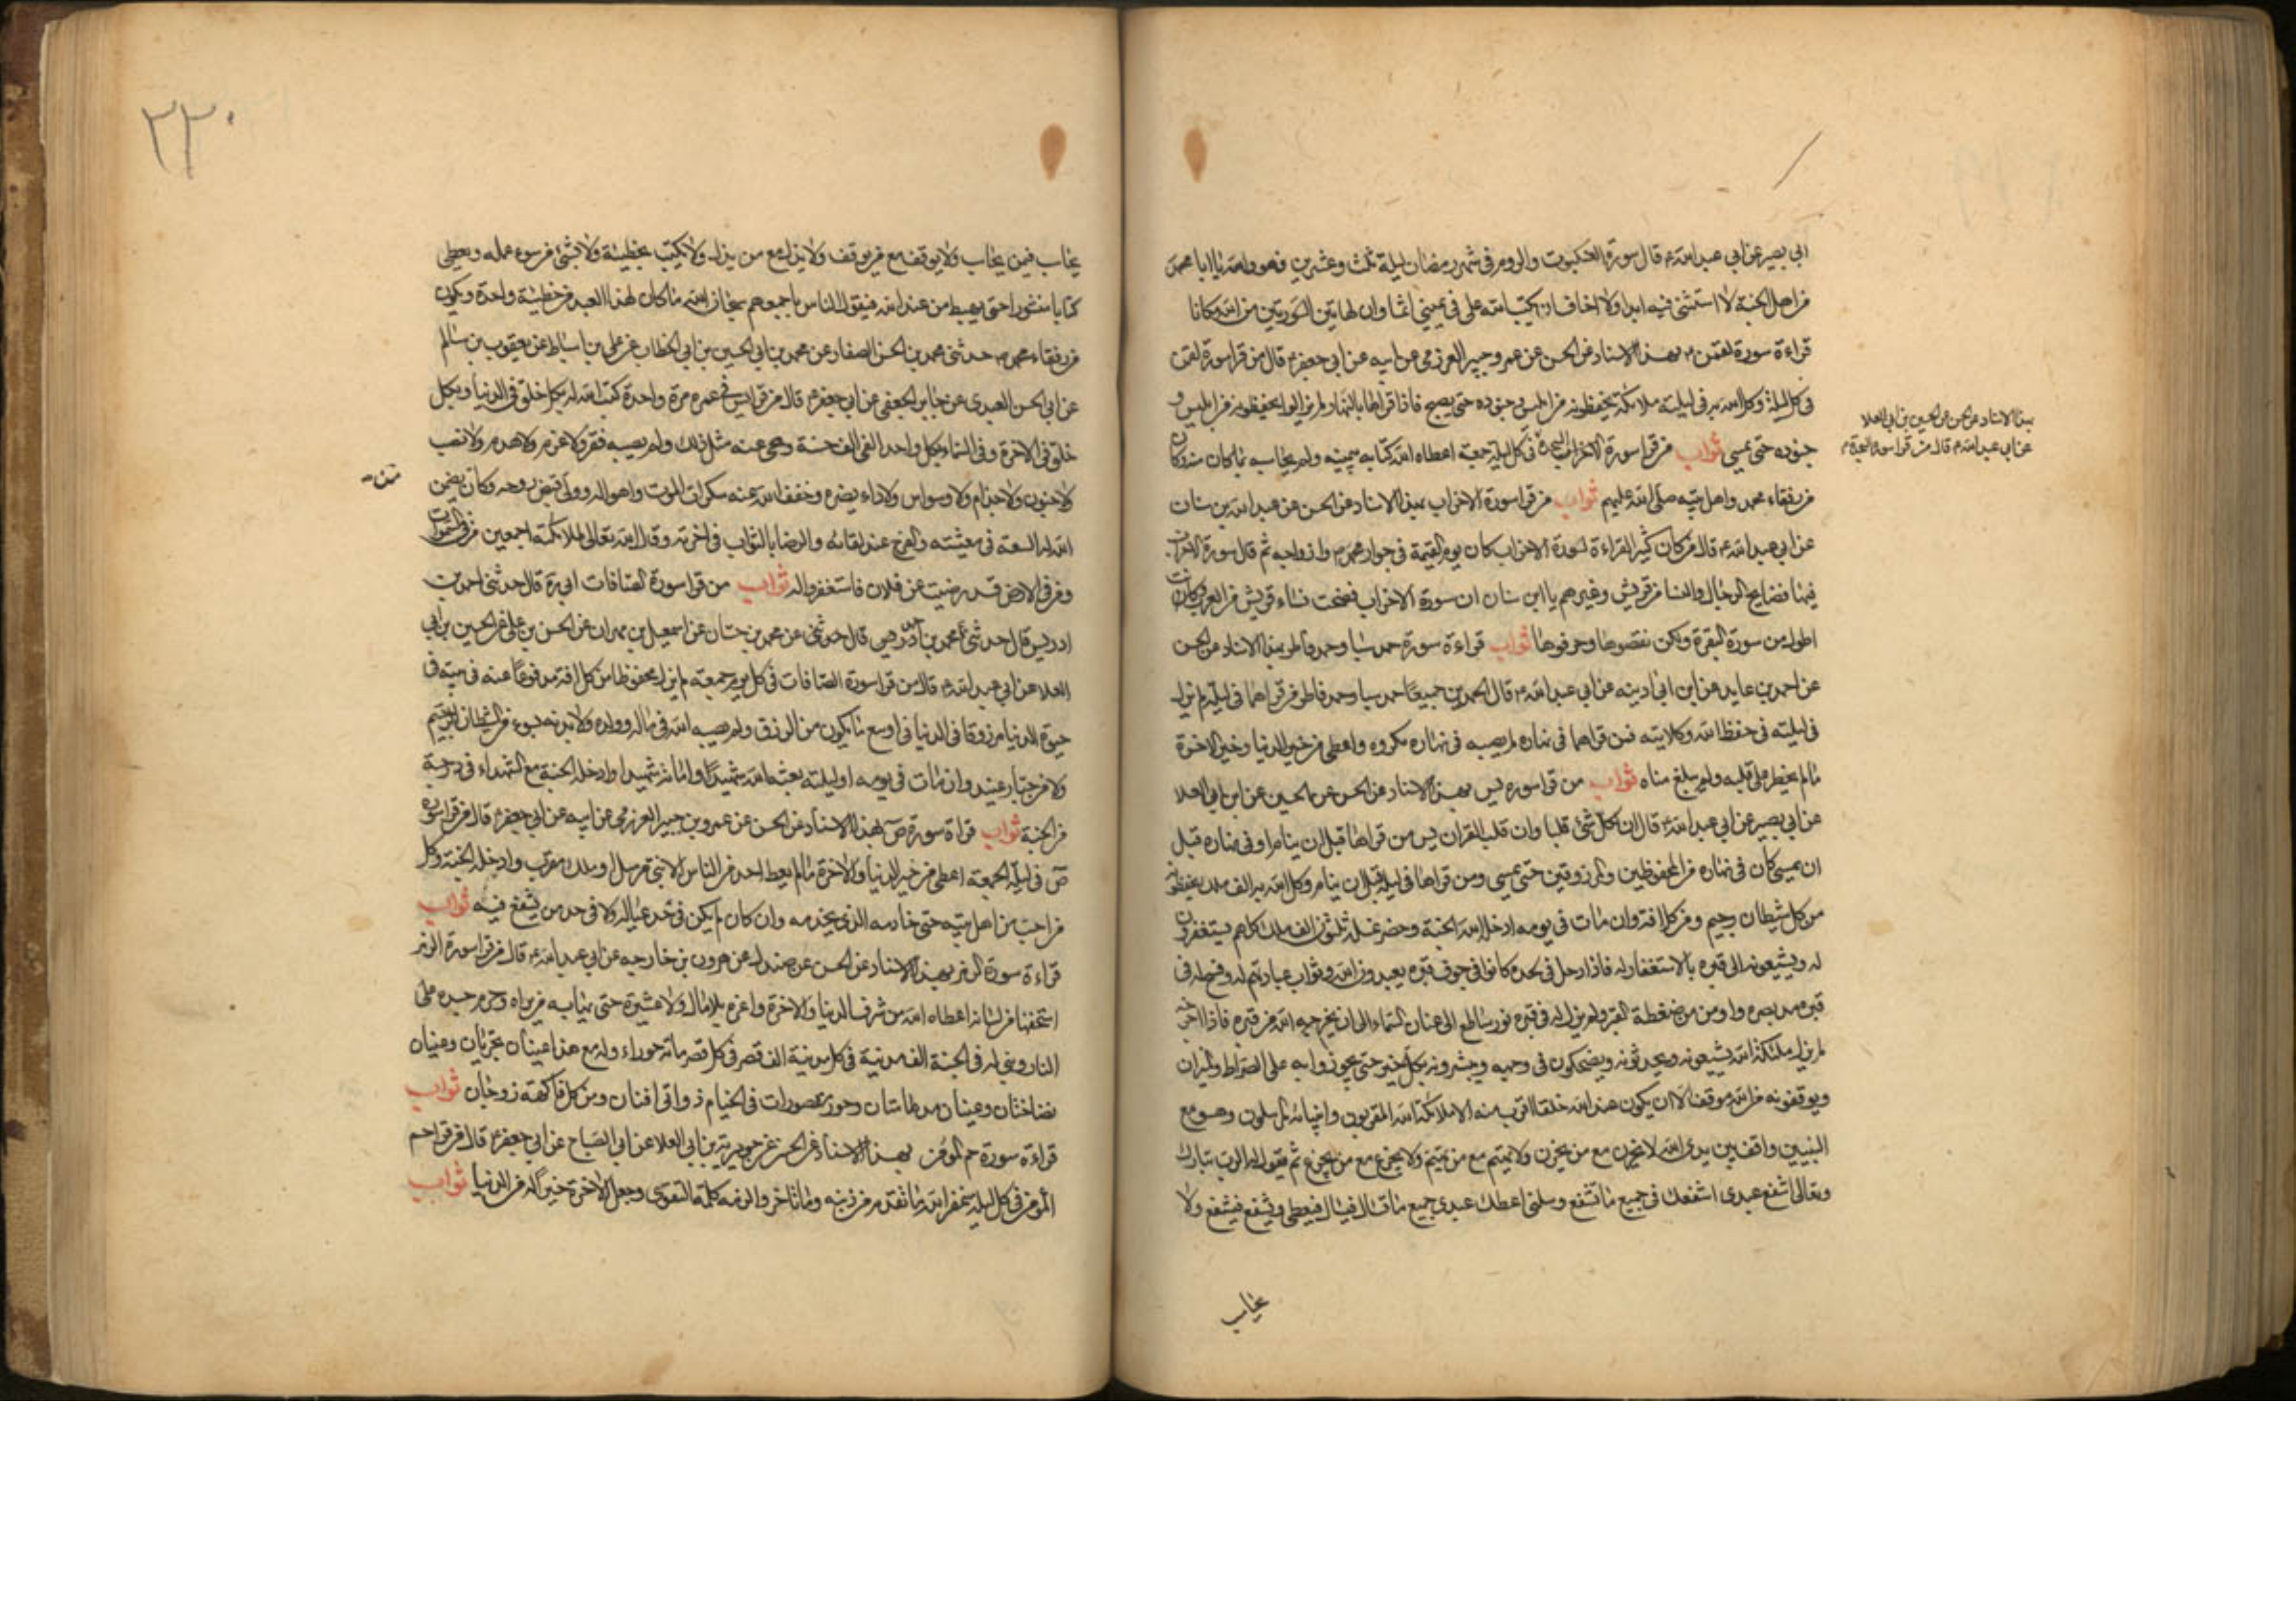 ابي بصير عن ابي عبد الله ع قال سورة العنكبوت والروم في شهر رمضان ليلة ثلث وعشرين فهو والله يا ابا محمد
من اهل الجنة لا استثنى فيه ابدا ولا اخاف ان يكتب الله على في يميني اثما وان لهاتين السورتين من الله مكانا
قراءة سورة لقمن بهذا الاسناد عن الحسن عن عمرو جبير العرزمي عن ابيه عن ابي جعفر ع قال من قرا سورة لقمن
في كل ليلة وكل الله به في ليلته ملائكة يحفظونه من ابليس وجنوده حتى يصبح فاذا قراها بالنهار لم يزالوا يحفظونه من ابليس و
جنوده حتى يمسي ثواب من قرا سورة الاحزاب السجدة في كل ليلة جمعة اعطاه الله كتابه بيمينه ولم يحاسبه بما كان منه وكان
بهذا الاسناد عن الحسن عن الحسين بن ابي العلا
عن ابي عبد الله ع قال من قرا سورة السجدة
من رفقاء محمد واهل بيته صلى الله عليهم ثواب من قرا سورة الاحزاب بهذا الاسناد عن الحسن عن عبد الله بن سنان
عن ابي عبد الله ع قال من كان كثير القراءة لسورة الاحزاب كان يوم القيمة في جوار محمد وازواجه ثم قال سورة الاحزاب
فيها فضايح الرجال والنساء من قريش وغيرهم يا ابن سنان ان سورة الاحزاب فضحت نساء قريش من العرب وكانت
اطول من سورة البقرة ولكن نقصوها وحرفوها ثواب قراءة سورة حمد سبا وحمد فاطر بهذا الاسناد عن الحسن
عن احمد بن عايد عن ابن اذينه عن ابي عبد الله ع قال الحمدين جميعا حمد سبا وحمد فاطر من قراهما في ليلة لم يزل
في ليلته في حفظ الله وكلايته فمن قراهما في نهاره لم يصبه في نهاره مكروه واعطى من خير الدنيا وخير الاخرة
ما لم يخطر على قلبه ولم يبلغ مناه ثواب من قرا سورة يس بهذا الاسناد عن الحسن عن الحسين عن ابن ابي العلا
عن ابي بصير عن ابي عبد الله ع قال ان لكل شئ قلبا وان قلب القران يس من قراها قبل ان ينام او في نهاره قبل
ان يمسي كان في نهاره من المحفوظين والمرزوقين حتى يمسي ومن قراها في ليله قبل ان ينام وكل الله به الف ملك يحفظونه
من كل شيطان رجيم ومن كل افة وان مات في يومه ادخله الله الجنة وحضر غسله ثلثون الف ملك كلهم يستغفرون
له ويشيعونه الى قبره بالاستغفار له فاذا دخل في لحده كانوا في جوف قبره يعبدون الله وثواب عبادتهم له وفسح له في
قبره مد بصره واومن من ضغطة القبر ولم يزل له في قبره نور ساطع الى عنان السماء الى ان يخرجه الله من قبره فاذا اخرجه
لم يزل ملئكة الله يشيعونه ويحدثونه ويضحكون في وجهه ويبشرونه بكل خير حتى يجوزوا به على الصراط والميزان
ويوقفونه من الله موقفا لا ان يكون عند الله خلقا اقرب منه الا ملائكة الله المقربون وانبيائه المرسلون وهو مع
النبيين واقف بين يدى الله لا يحزن مع من يحزن ولا يهتم مع من يهتم ولا يجزع مع من يجزع ثم يقول له الرب تبارك
وتعالى اشفع عبدى اشفعك في جميع ما تشفع وسلني اعطك عبدى جميع ما تسال فيسال فيعطى ويشفع فيشفع ولا
يحاب
٢٢٠
يحاب فيمن يحاب ولا يوقف مع من يوقف ولا يذل مع من يذل ولا يكتب بخطيئة ولا بشئ من سوء عمله ويعطى
كتابا منشورا حتى يهبط من عند الله فيقول الناس باجمعهم سبحان الله ما كان لهذا العبد من خطيئة واحدة ويكون
من رفقاء محمد حدثني محمد بن الحسن الصفار عن محمد بن ابي الحسين بن ابي الخطاب عن علي بن اسباط عن يعقوب بن سالم
عن ابي الحسن العبدى عن جابر الجعفي عن ابي جعفر ع قال من قرا يس في عمره مرة واحدة كتب الله له بكل خلق في الدنيا وبكل
خلق في الاخرة وفي السماء بكل واحد الفي الف حسنة ومحى عنه مثل ذلك ولم يصبه فقر ولا غرم ولا هدم ولا نصب
ولا جنون ولا جذام ولا وسواس ولا داء يضره وخفف الله عنه سكرات الموت واهواله وولى قبض روحه وكان ممن يضمن
الله له السعة في معيشته والفرح عند لقائه والرضا بالثواب في اخرته وقال الله تعالى لملائكته اجمعين من في السموات
ومن في الارض قد رضيت عن فلان فاستغفروا له ثواب من قرا سورة الصافات ابي ره قال حدثني احمد بن
ادريس قال حدثني محمد بن احمد قال حدثني عن محمد بن حسان عن اسمعيل بن مهران عن الحسن بن علي عن الحسين بن ابي
العلا عن ابي عبد الله ع قال من قرا سورة الصافات في كل يوم جمعة لم يزل محفوظا من كل افة مدفوعا عنه في
حيوة الدنيا مرزوقا في الدنيا في اوسع ما يكون من الرزق ولم يصبه الله في ماله وولده ولا بدنه بسوء من شيطان رجيم
ولا من جبار عنيد وان مات في يومه او ليلته بعثه الله شهيدا واماته شهيدا وادخله الجنة مع الشهداء في درجة
من الجنة ثواب قراة سورة ص بهذا الاسناد عن الحسن عن عمرو بن جبير العرزمي عن ابيه عن ابي جعفر ع قال من قرا سورة
ص في ليلة الجمعة اعطى من خير الدنيا والاخرة ما لم يعط احد من الناس الا نبي مرسل او ملك مقرب وادخله الجنة وكل
من احب من اهل بيته حتى خادمه الذى يخدمه وان كان لم يكن في حد عياله ولا في حد من يشفع فيه ثواب
قراءة سورة الزمر بهذا الاسناد عن الحسن عن صندل عن هرون بن خارجه عن ابي عبد الله ع قال من قرا سورة الزمر
استخفها من لسانه اعطاه الله من شرف الدنيا والاخرة واعزه بلا مال ولا عشيرة حتى يهابه من يراه وحرم جسده على
النار وبني له في الجنة الف مدينة في كل مدينة الف قصر في كل قصر مائة حوراء وله مع هذا عينان تجريان وعينان
نضاختان وعينان مدهامتان وحور مقصورات في الخيام ذواتا افنان ومن كل فاكهة زوجان ثواب
قراءة سورة حم المؤمن بهذا الاسناد عن الحسن عن جويرية بن ابي العلا عن ابي الصباح عن ابي جعفر ع قال من قرا حم
المؤمن في كل ليلة غفر الله ما تقدم من ذنبه وما تاخر والزمه كلمة التقوى وجعل الاخرة خيرا له من الدنيا ثواب